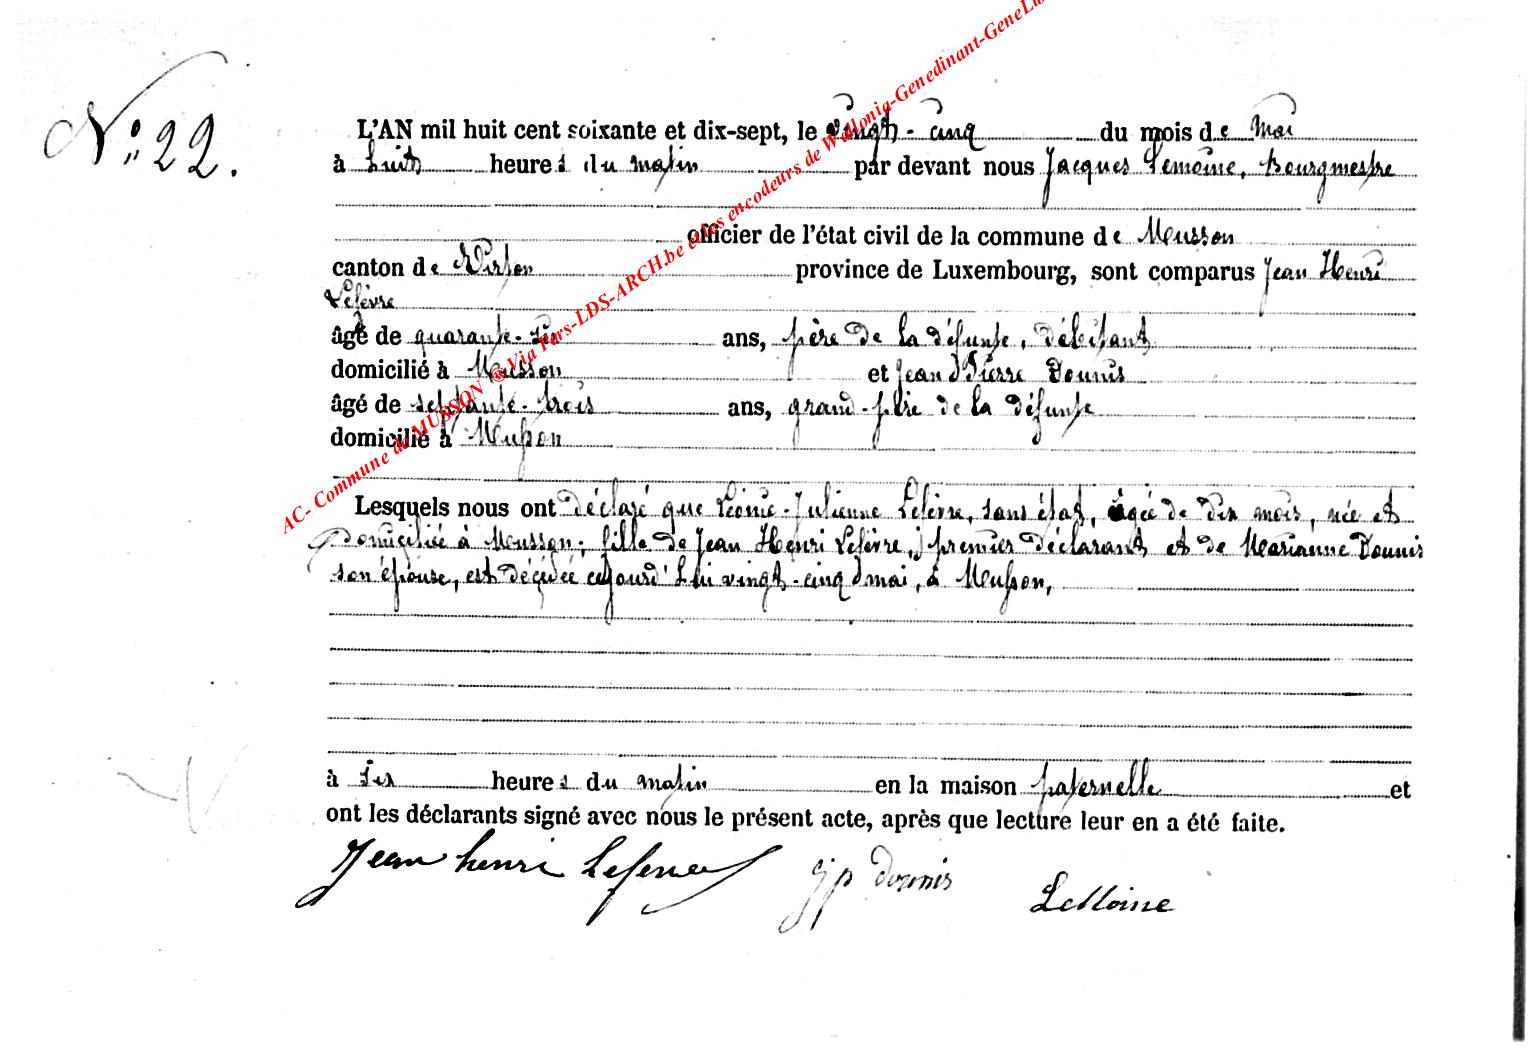 N° 22.
L'AN mil huit cent soixante et dix-sept, le vingt-cinq du mois de Mai
à huit heures du matin par devant nous Jacques Lemoine, Bourgmestre
officier de l'état civil de la commune de Musson
canton de Virton province de Luxembourg, sont comparus Jean Henri
Lefèvre
âgé de quarante- ans, père de la défunte, débitant
domicilié à Musson et Jean Pierre Dounis
âgé de septante-trois ans, grand-père de la défunte
domicilié à Musson
Lesquels nous ont déclaré que Léonie-Julienne Lefèvre, sans état, âgée de dix mois, née et
domiciliée à Musson, fille de Jean Henri Lefèvre, premier déclarant et de Marianne Dounis
son épouse, est décédée cejourd'hui vingt-cinq mai, à Musson,
à six heures du matin en la maison paternelle et
ont les déclarants signé avec nous le présent acte, après que lecture leur en a été faite.
Jean henri Lefevre jp dounis LeMoine
AC- Commune de MUSSON @ Via Fars-LDS-ARCH.be et les encodeurs de Wallonia-Genedinant-GeneLux